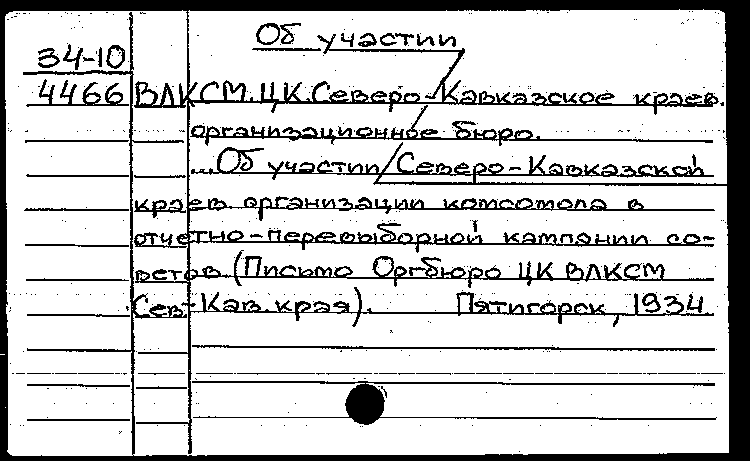 Об участии
34-10
4466 ВЛКСМ. ЦК. Северо-Кавказское краев.
организационное бюро.
...Об участии/Северо-Кавказской
краев. организации комсомола в
отчетно-перевыборной кампании со-
ветов. (Письмо Оргбюро ЦК ВЛКСМ
Сев.-Кав. края). Пятигорск, 1934.